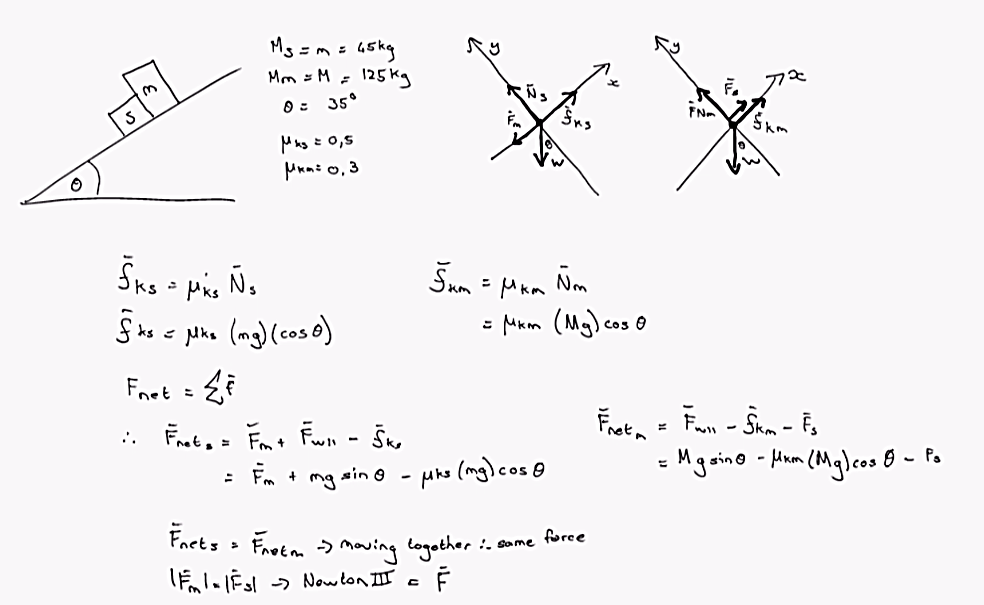 M_s = m = 45kg
M_m = M = 125kg
θ = 35°
μ_ks = 0,5
μ_km = 0,3
S
m
θ
y
x
N̄_s
F̄_m
f̄_ks
θ
w
y
x
F̄_s
F̄_Nm
f̄_km
θ
w
f̄_ks = μ_ks N̄_s
f̄_ks = μ_ks (mg)(cos θ)
f̄_km = μ_km N̄_m
= μ_km (Mg) cos θ
F_net = ΣF̄
∴ F̄_net_s = F̄_m + F̄_w|| - f̄_ks
= F̄_m + mg sin θ - μ_ks (mg) cos θ
F̄_net_m = F̄_w|| - f̄_km - F̄_s
= Mg sin θ - μ_km (Mg) cos θ - F_s
F̄_net_s = F̄_net_m → moving together ∴ same force
|F̄_m| = |F̄_s| → Newton III = F̄